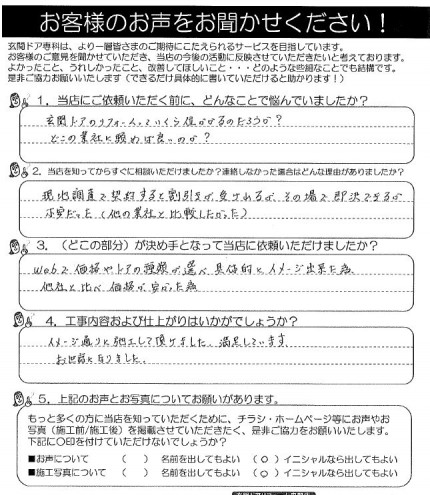 お客様のお声をお聞かせください！
玄関ドア専科は、より一層皆さまのご期待にこたえられるサービスを目指しています。
お客様のご意見を聞かせていただき、当店の今後の活動に反映させていただきたいと考えております。
よかったこと、うれしかったこと、改善してほしいこと・・・どのような些細なことでも結構です。
是非ご協力お願いいたします（できるだけ具体的に書いていただけると助かります！）
1．当店にご依頼いただく前に、どんなことで悩んでいましたか？
玄関ドアのリフォームっていくら位かかるのだろうか？
どこの業社に頼めば良いのか？
2．当店を知ってからすぐに相談いただけましたか？連絡しなかった場合はどんな理由がありましたか？
現地調査で契約すると割引きが受けれるが、その場で即決できるか
不安だった（他の業社と比較したかった）
3．（どこの部分）が決め手となって当店に依頼いただけましたか？
webで価格やドアの種類が選べ具体的にイメージ出来た為
他社と比べ価格が安かった為
4．工事内容および仕上がりはいかがでしょうか？
イメージ通りに施工して頂けました。満足しています
お世話になりました。
5．上記のお声とお写真についてお願いがあります。
もっと多くの方に当店を知っていただくために、チラシ・ホームページ等にお声やお
写真（施工前/施工後）を掲載させていただきたく、是非ご協力をお願いいたします。
下記に○印を付けていただけないでしょうか？
■お声について （ ） 名前を出してもよい （○）イニシャルなら出してもよい
■施工写真について （ ） 名前を出してもよい （○）イニシャルなら出してもよい